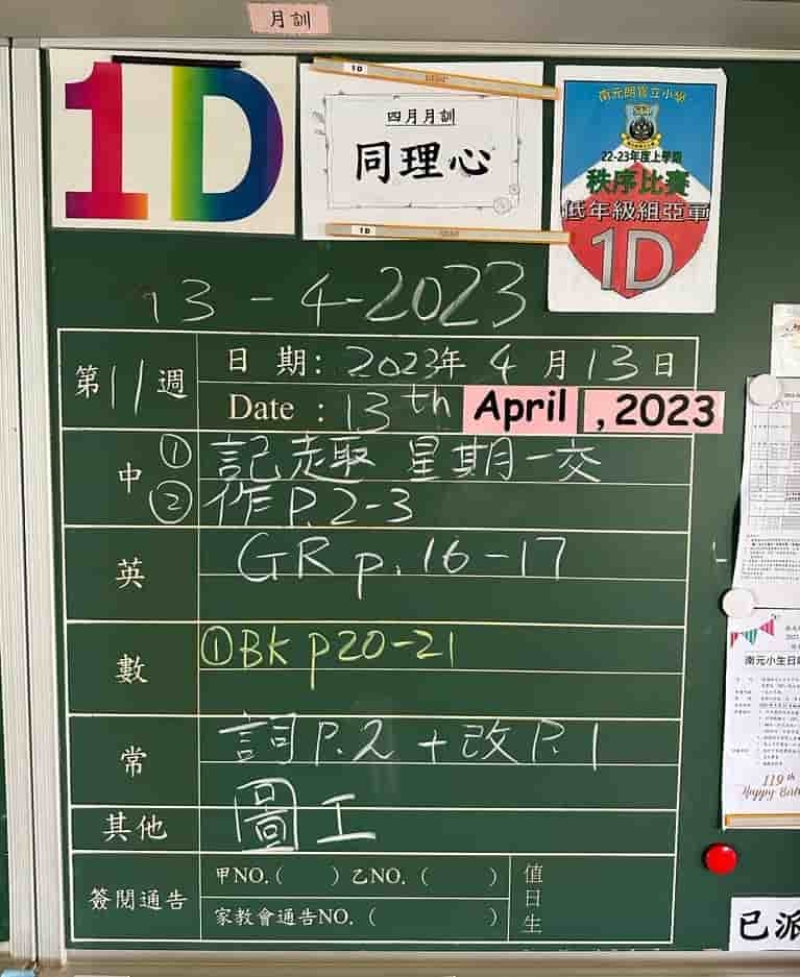 月訓
1D
1D
四月月訓
同理心
1D
南元朗官立小學
22-23年度上學期
秩序比賽
低年級組亞軍
1D
13-4-2023
第11週
日期: 2023年4月13日
Date : 13th April , 2023
中
① 記趣 星期一交
② 作P.2-3
英
GR p.16-17
數
①BK p20-21
常
詞P.2 + 改P.1
其他
圖工
簽閱通告
甲NO.( ) 乙NO. ( )
家教會通告NO. ( )
值日生
南元小生日
119th
Happy Birth
已派